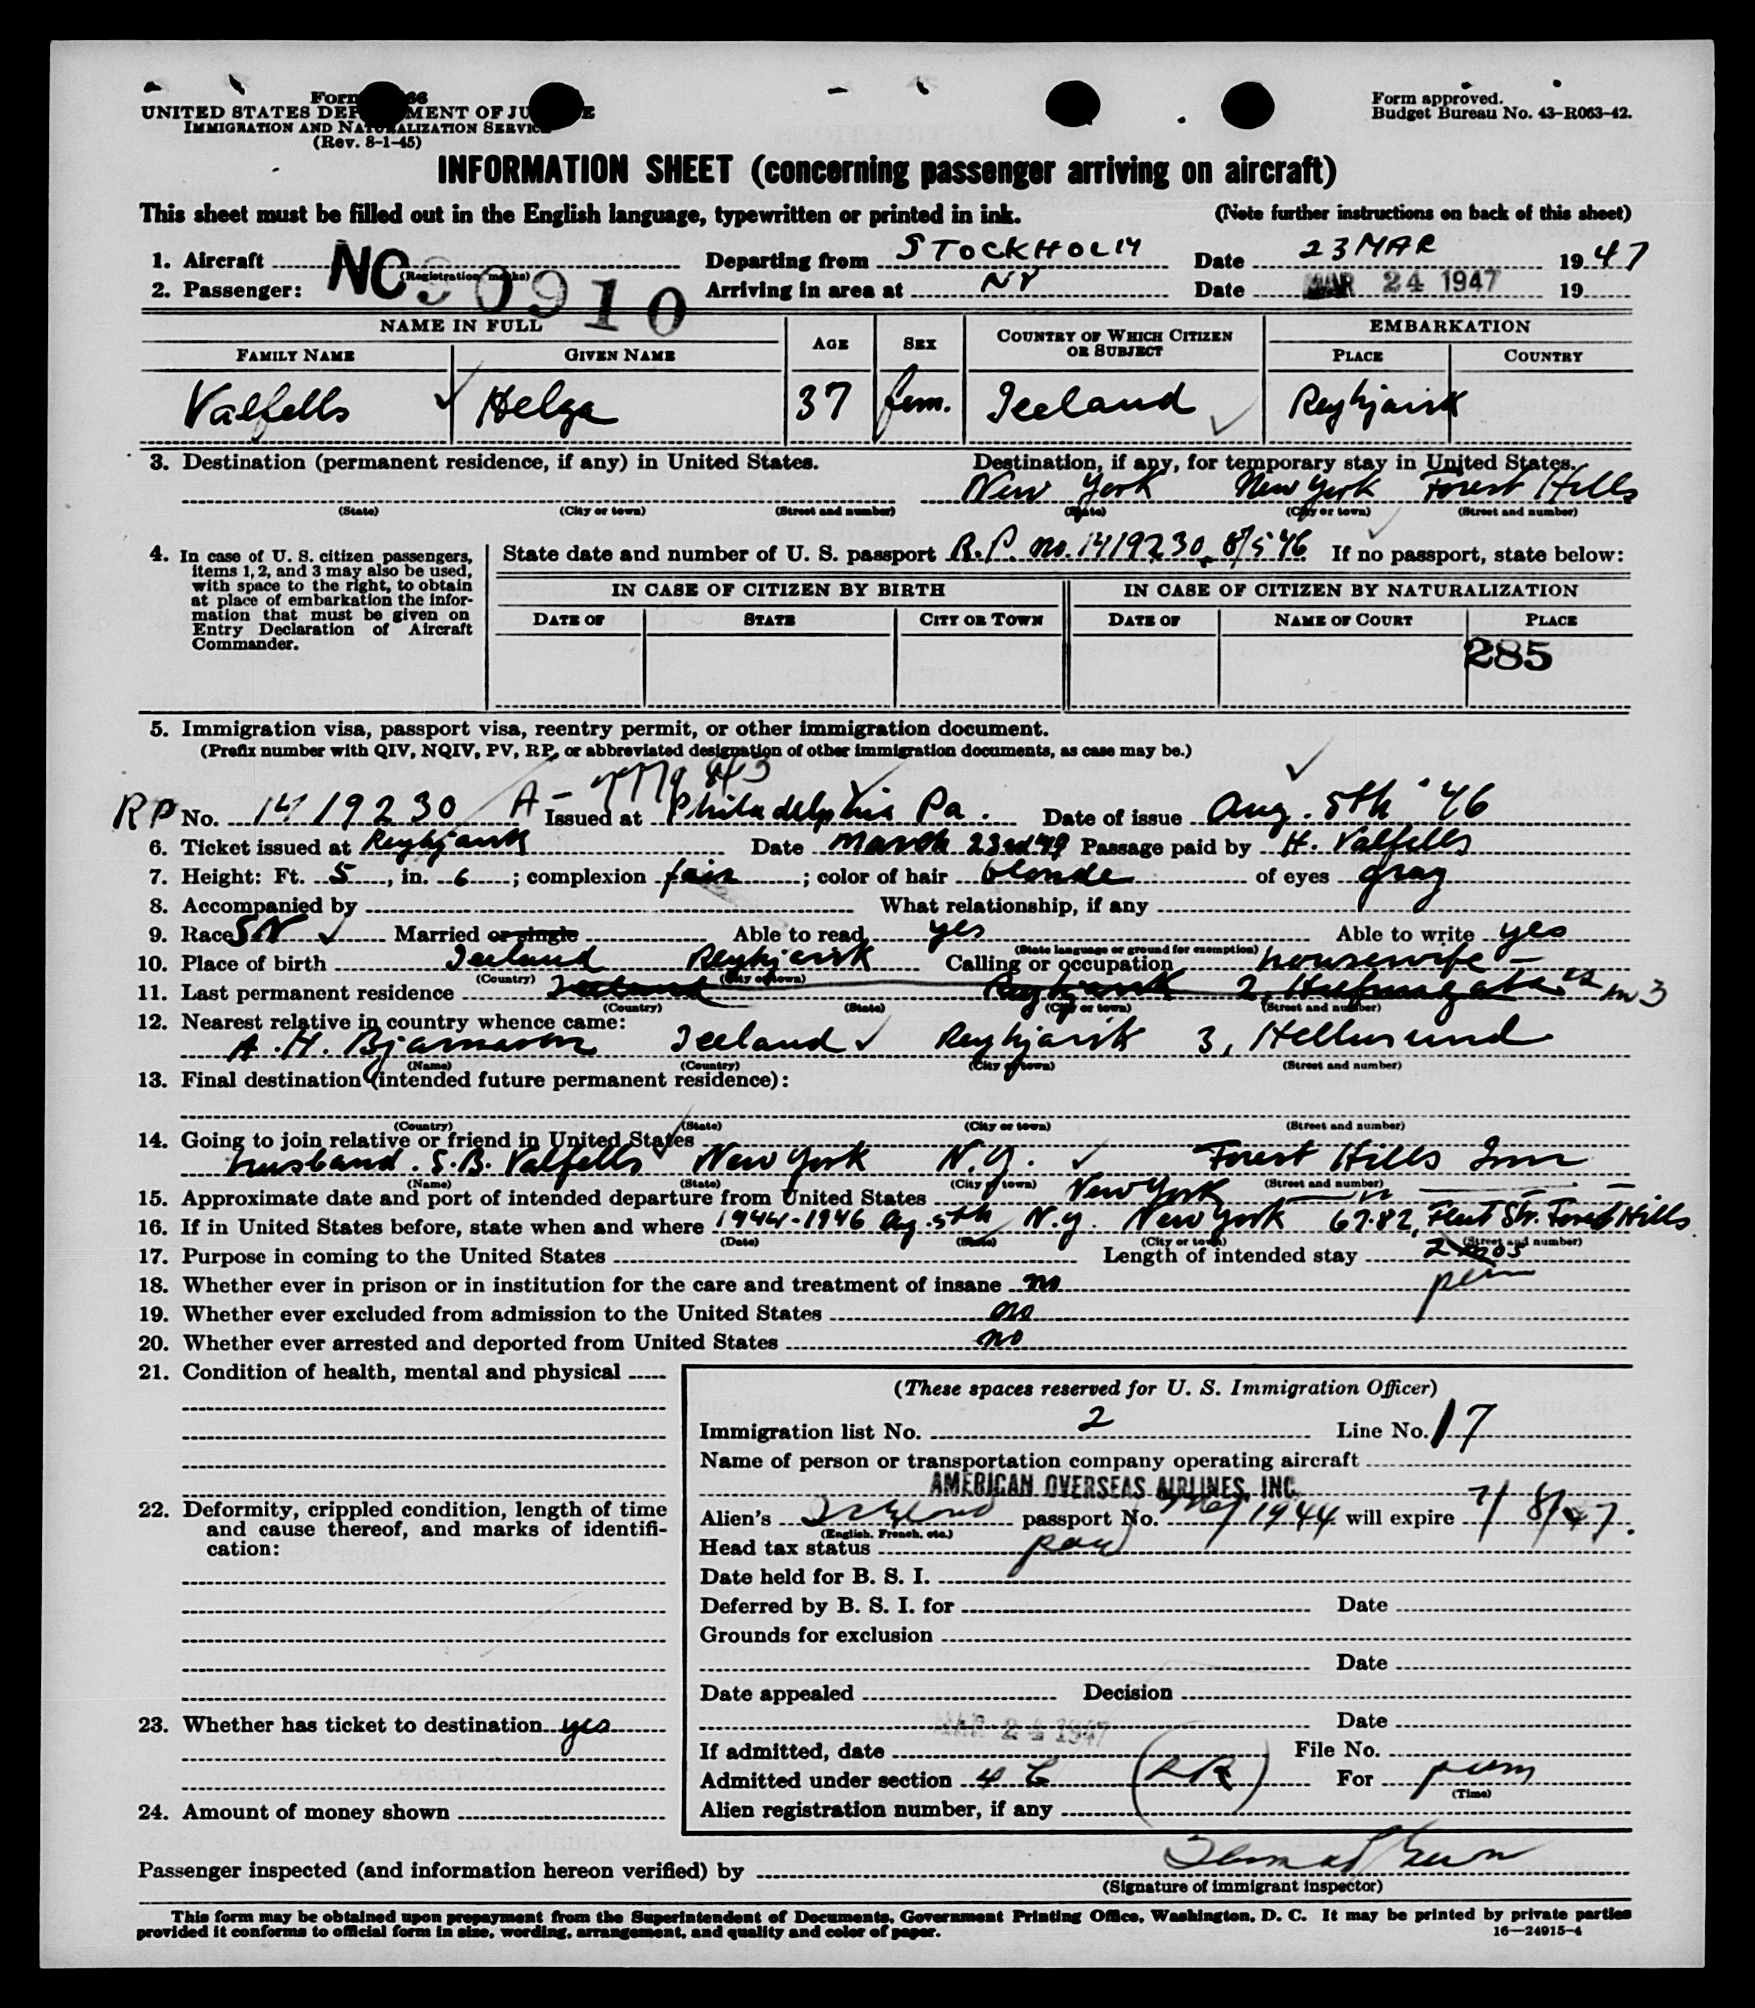 Form 66
UNITED STATES DEPARTMENT OF JUSTICE
IMMIGRATION AND NATURALIZATION SERVICE
(Rev. 8-1-45)
Form approved.
Budget Bureau No. 43-R063-42.
INFORMATION SHEET (concerning passenger arriving on aircraft)
This sheet must be filled out in the English language, typewritten or printed in ink. (Note further instructions on back of this sheet)
1. Aircraft NC 90910 (Registration marks) Departing from STOCKHOLM Date 23 MAR 1947
2. Passenger: Arriving in area at NY Date MAR 24 1947 19
NAME IN FULL AGE SEX COUNTRY OF WHICH CITIZEN OR SUBJECT EMBARKATION
FAMILY NAME GIVEN NAME PLACE COUNTRY
Valfells Helga 37 fem. Iceland Reykjavik
3. Destination (permanent residence, if any) in United States. Destination, if any, for temporary stay in United States.
New York New York Forest Hills
(State) (City or town) (Street and number) (State) (City or town) (Street and number)
4. In case of U. S. citizen passengers, items 1, 2, and 3 may also be used, with space to the right, to obtain at place of embarkation the information that must be given on Entry Declaration of Aircraft Commander.
State date and number of U. S. passport R.P. no. 1419230, 8/5 46 If no passport, state below:
IN CASE OF CITIZEN BY BIRTH IN CASE OF CITIZEN BY NATURALIZATION
DATE OF STATE CITY OR TOWN DATE OF NAME OF COURT PLACE
285
5. Immigration visa, passport visa, reentry permit, or other immigration document.
(Prefix number with QIV, NQIV, PV, RP, or abbreviated designation of other immigration documents, as case may be.)
RP No. 1419230 A- Issued at Philadelphia Pa. Date of issue Aug. 5th '46
6. Ticket issued at Reykjavik Date March 23rd Passage paid by H. Valfells
7. Height: Ft. 5, in. 6; complexion fair; color of hair blonde of eyes gray
8. Accompanied by What relationship, if any
9. Race SN Married or single Able to read yes (State language or ground for exemption) Able to write yes
10. Place of birth Iceland Reykjavik Calling or occupation housewife
(Country) (City or town)
11. Last permanent residence Iceland Reykjavik 2,
(Country) (State) (City or town) (Street and number)
12. Nearest relative in country whence came:
A. H. Bjarnason Iceland Reykjavik 3, Hellusund
(Name) (Country) (City or town) (Street and number)
13. Final destination (intended future permanent residence):
(Country) (State) (City or town) (Street and number)
14. Going to join relative or friend in United States
husband. S.B. Valfells New York N.Y. Forest Hills Inn
(Name) (State) (City or town) (Street and number)
15. Approximate date and port of intended departure from United States New York
16. If in United States before, state when and where 1944-1946 Aug. 5th N.Y. New York 67-82, Fleet Str. Forest Hills
(Date) (State) (City or town) (Street and number)
17. Purpose in coming to the United States Length of intended stay 2 mos
perm
18. Whether ever in prison or in institution for the care and treatment of insane no
19. Whether ever excluded from admission to the United States no
20. Whether ever arrested and deported from United States no
21. Condition of health, mental and physical
22. Deformity, crippled condition, length of time and cause thereof, and marks of identification:
23. Whether has ticket to destination yes
24. Amount of money shown
(These spaces reserved for U. S. Immigration Officer)
Immigration list No. 2 Line No. 17
Name of person or transportation company operating aircraft
AMERICAN OVERSEAS AIRLINES, INC.
Alien's Iceland passport No. 1944 will expire 7/8/47.
(English, French, etc.)
Head tax status
Date held for B. S. I.
Deferred by B. S. I. for Date
Grounds for exclusion
Date
Date appealed Decision
Date
If admitted, date MAR 24 1947 File No.
Admitted under section 4 b For perm
(Time)
Alien registration number, if any
Passenger inspected (and information hereon verified) by
(Signature of immigrant inspector)
This form may be obtained upon prepayment from the Superintendent of Documents, Government Printing Office, Washington, D. C. It may be printed by private parties
provided it conforms to official form in size, wording, arrangement, and quality and color of paper.
16—24915-4